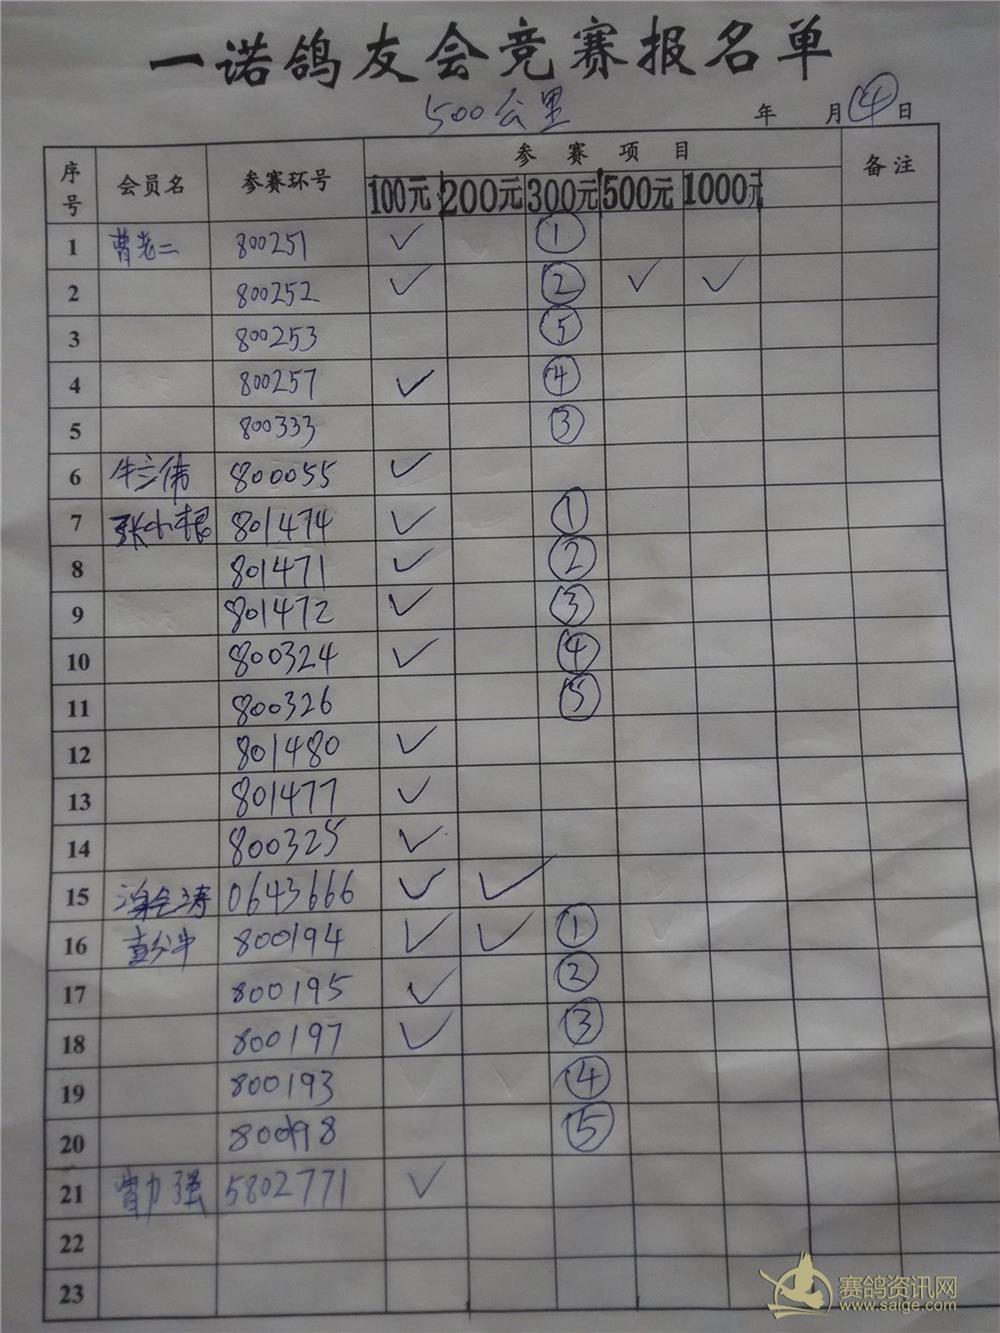 一诺鸽友会竞赛报名单
500公里 年 月④日
序号 会员名 参赛环号 参赛项目 备注
100元 200元 300元 500元 1000元
1 曹老二 800251 ✓ ①
2 800252 ✓ ② ✓ ✓
3 800253 ⑤
4 800257 ✓ ④
5 800333 ③
6 牛立伟 800055 ✓
7 张小根 801474 ✓ ①
8 801471 ✓ ②
9 801472 ✓ ③
10 800324 ✓ ④
11 800326 ⑤
12 801480 ✓
13 801477 ✓
14 800325 ✓
15 0643666 ✓ ✓
16 800194 ✓ ✓ ①
17 800195 ✓ ②
18 800197 ✓ ③
19 800193 ④
20 800198 ⑤
21 曹力强 5802771 ✓
22
23
赛鸽资讯网
www.saige.com